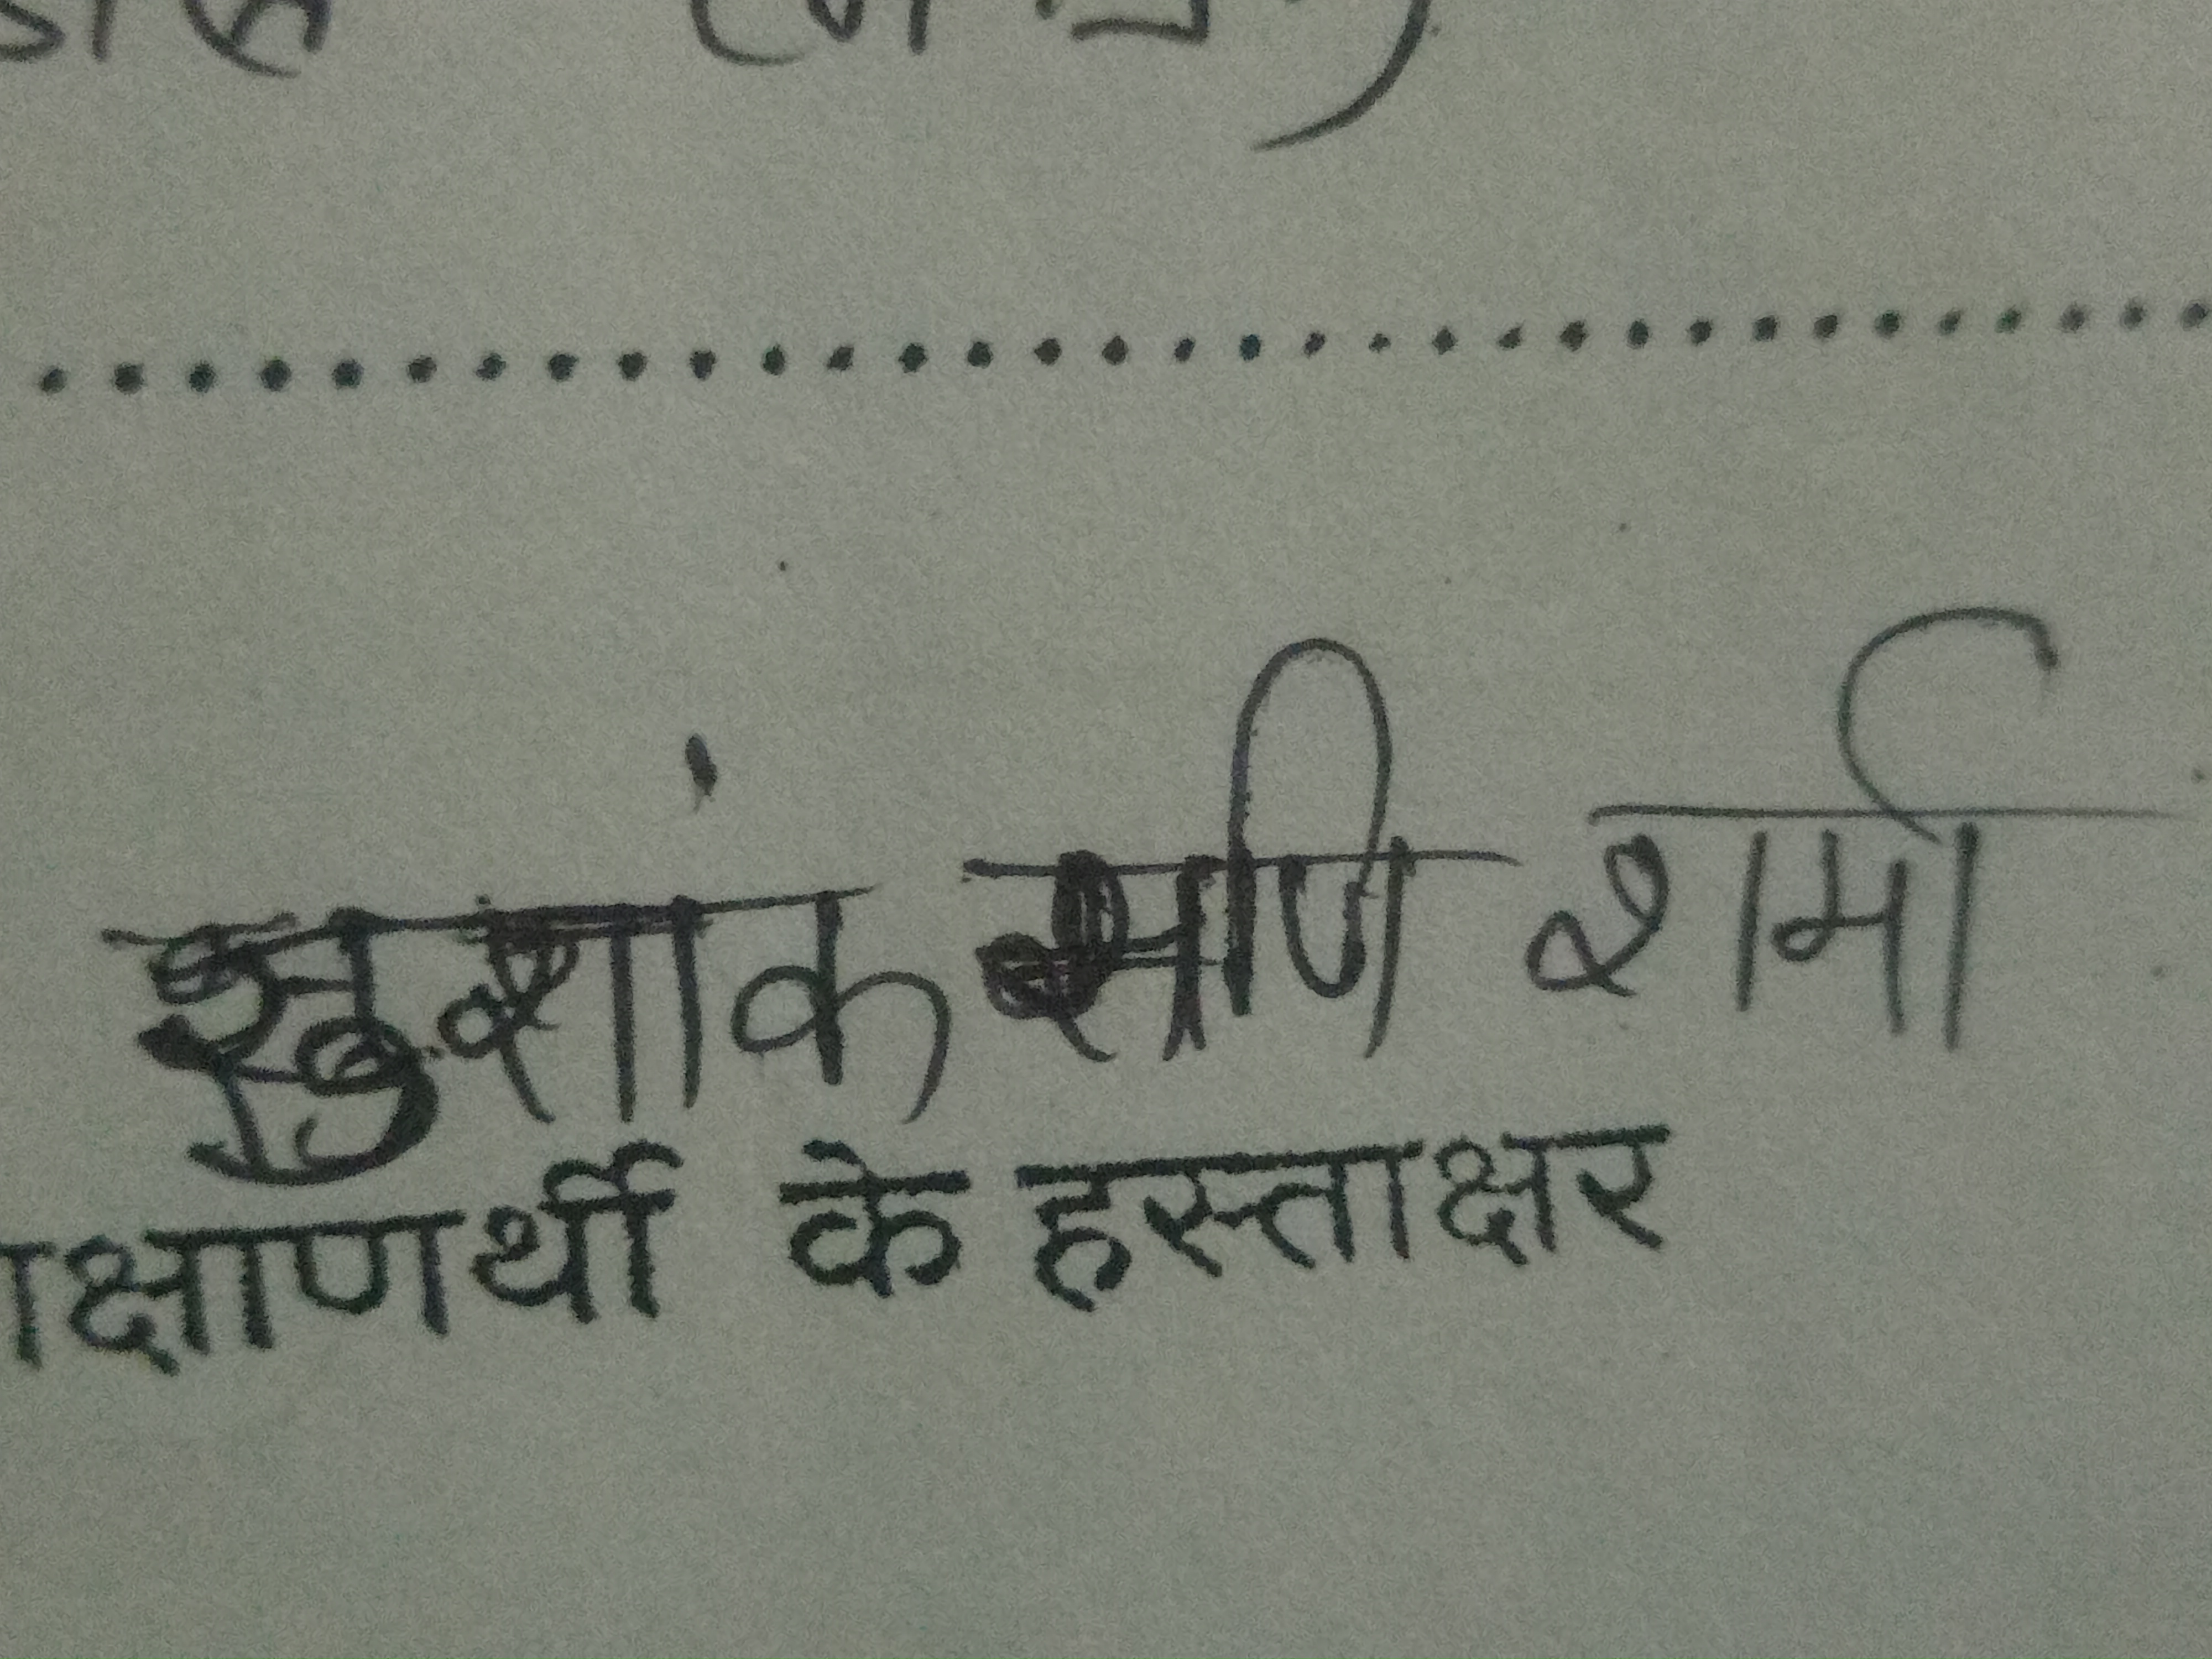 (म.प्र.)
सुशांक मणि शर्मा
क्षाणर्थी के हस्ताक्षर